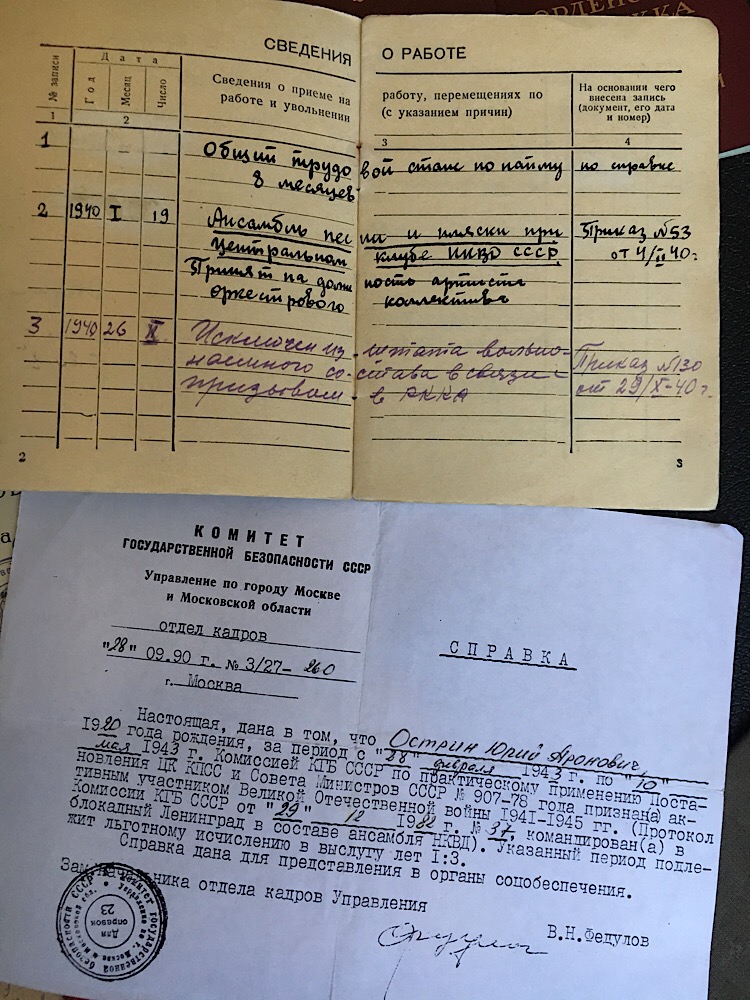 ОРДЕНС
СВЕДЕНИЯ О РАБОТЕ
№ записи
Дата
Год
Месяц
Число
Сведения о приеме на работу, перемещениях по
работе и увольнении (с указанием причин)
На основании чего
внесена запись
(документ, его дата
и номер)
1 2 3 4
1 Общий трудовой стаж по найму по справке
8 месяцев
2 1940 I 19 Ансамбль песни и пляски при Приказ №53
Центральном клубе НКВД СССР от 4/II 40г.
Принят на должность артиста
оркестрового коллектива
3 1940 26 X Исключен из штата вольно- Приказ №130
наемного состава в связи с от 29/X-40 г.
призывом в РККА
2 3
КОМИТЕТ
ГОСУДАРСТВЕННОЙ БЕЗОПАСНОСТИ СССР
Управление по городу Москве
и Московской области
отдел кадров
"28" 09.90 г. № 3/27- 260
г. Москва
СПРАВКА
Настоящая, дана в том, что Острин Юрий Аронович,
1920 года рождения, за период с "28" февраля 1943 г. по "10"
мая 1943 г. Комиссией КГБ СССР по практическому применению Поста-
новления ЦК КПСС и Совета Министров СССР № 907-78 года признан(а) ак-
тивным участником Великой Отечественной войны 1941-1945 гг. (Протокол
Комиссии КГБ СССР от "29" 12 1982 г. № 37, командирован(а) в
блокадный Ленинград в составе ансамбля НКВД). Указанный период подле-
жит льготному исчислению в выслугу лет 1:3.
Справка дана для представления в органы соцобеспечения.
Зам. начальника отдела кадров Управления
В.Н.Федулов
Для
справок
23